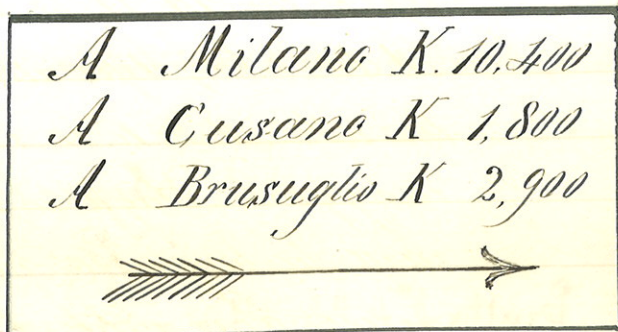 A Milano K. 10,400
A Cusano K 1,800
A Brusuglio K 2,900